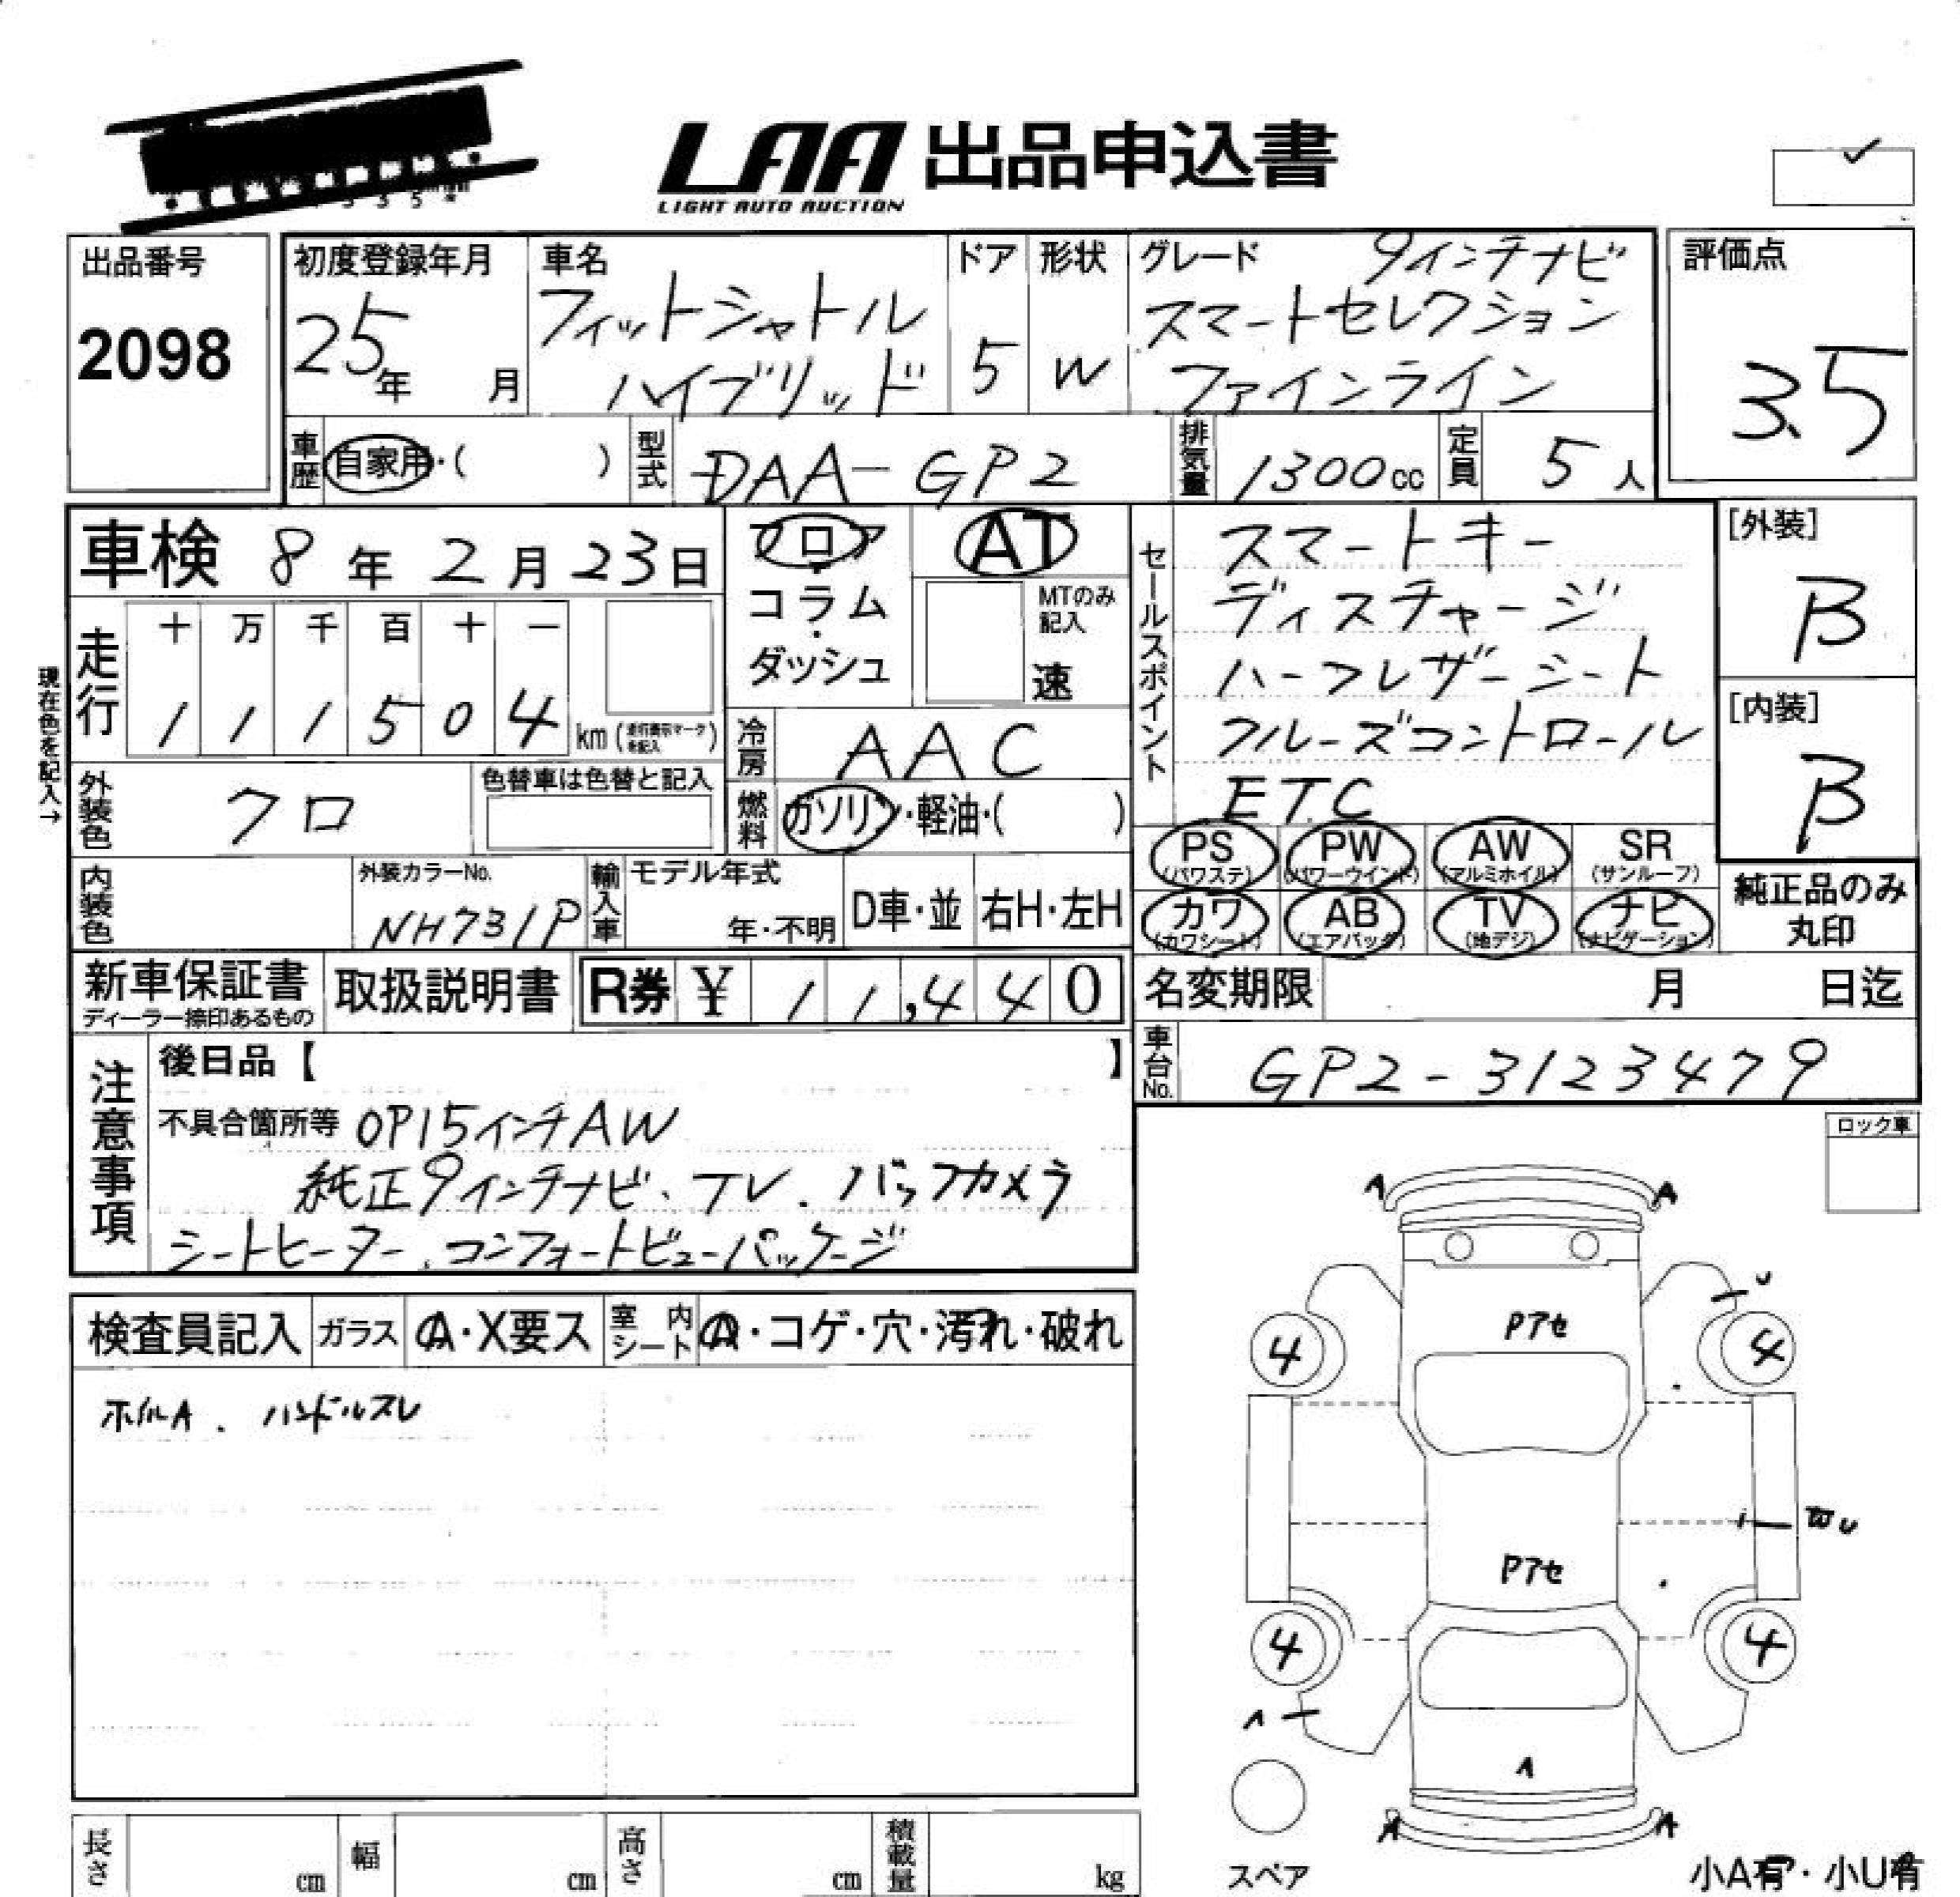 LAA 出品申込書
LIGHT AUTO AUCTION
出品番号
2098
初度登録年月
25年 月
車名
フィットシャトル
ハイブリッド
ドア
5
形状
W
グレード 9インチナビ
スマートセレクション
ファインライン
評価点
3.5
車歴 自家用・( )
型式 DAA-GP2
排気量 1300cc
定員 5人
車検 8年 2月 23日
フロア・コラム・ダッシュ
AT
MTのみ記入
速
セールスポイント
スマートキー
ディスチャージ
ハーフレザーシート
クルーズコントロール
ETC
[外装]
B
[内装]
B
現在色を記入→
走行
十 万 千 百 十 一
1 1 1 5 0 4 km
冷房 AAC
外装色 クロ
色替車は色替と記入
燃料 ガソリン・軽油・( )
PS (パワステ)
PW (パワーウインド)
AW (アルミホイル)
SR (サンルーフ)
カワ (カワシート)
AB (エアバック)
TV (地デジ)
ナビ (ナビゲーション)
純正品のみ
丸印
内装色
外装カラーNo.
NH731P
輸入車
モデル年式
年・不明
D車・並
右H・左H
新車保証書
ディーラー捺印あるもの
取扱説明書
R券 ¥ 11,440
名変期限 月 日迄
車台No. GP2-3123479
注意事項
後日品【 】
不具合箇所等 OP15インチAW
純正9インチナビ、TV、バックカメラ
シートヒーター、コンフォートビューパッケージ
ロック車
検査員記入
ガラス A・X要ス
室内シート A・コゲ・穴・汚れ・破れ
ホイルA、ハンドルスレ
A A
U
Pアセ
4 4
WU
Pアセ
4 4
A
A
A A
スペア
小A有・小U有
長さ cm
幅 cm
高さ cm
積載量 kg